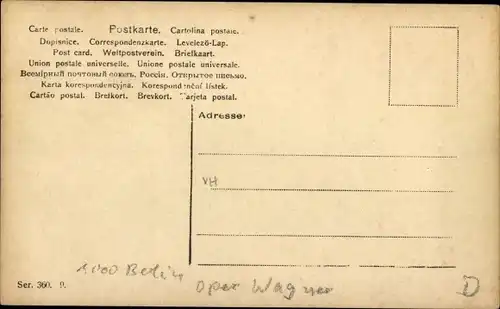 Carte postale. Postkarte. Cartolina postale.
Dopisnice. Correspondenzkarte. Levelező-Lap.
Post card. Weltpostverein. Briefkaart.
Union postale universelle. Unione postale universale.
Всемірный почтовый союзъ. Россія. Открытое письмо.
Karta korespondencyjna. Korespondenční lístek.
Cartão postal. Brefkort. Brevkort. Tarjeta postal.
Adresse:
VH
1000 Berlin
Oper Wagner
D
Ser. 360. 9.